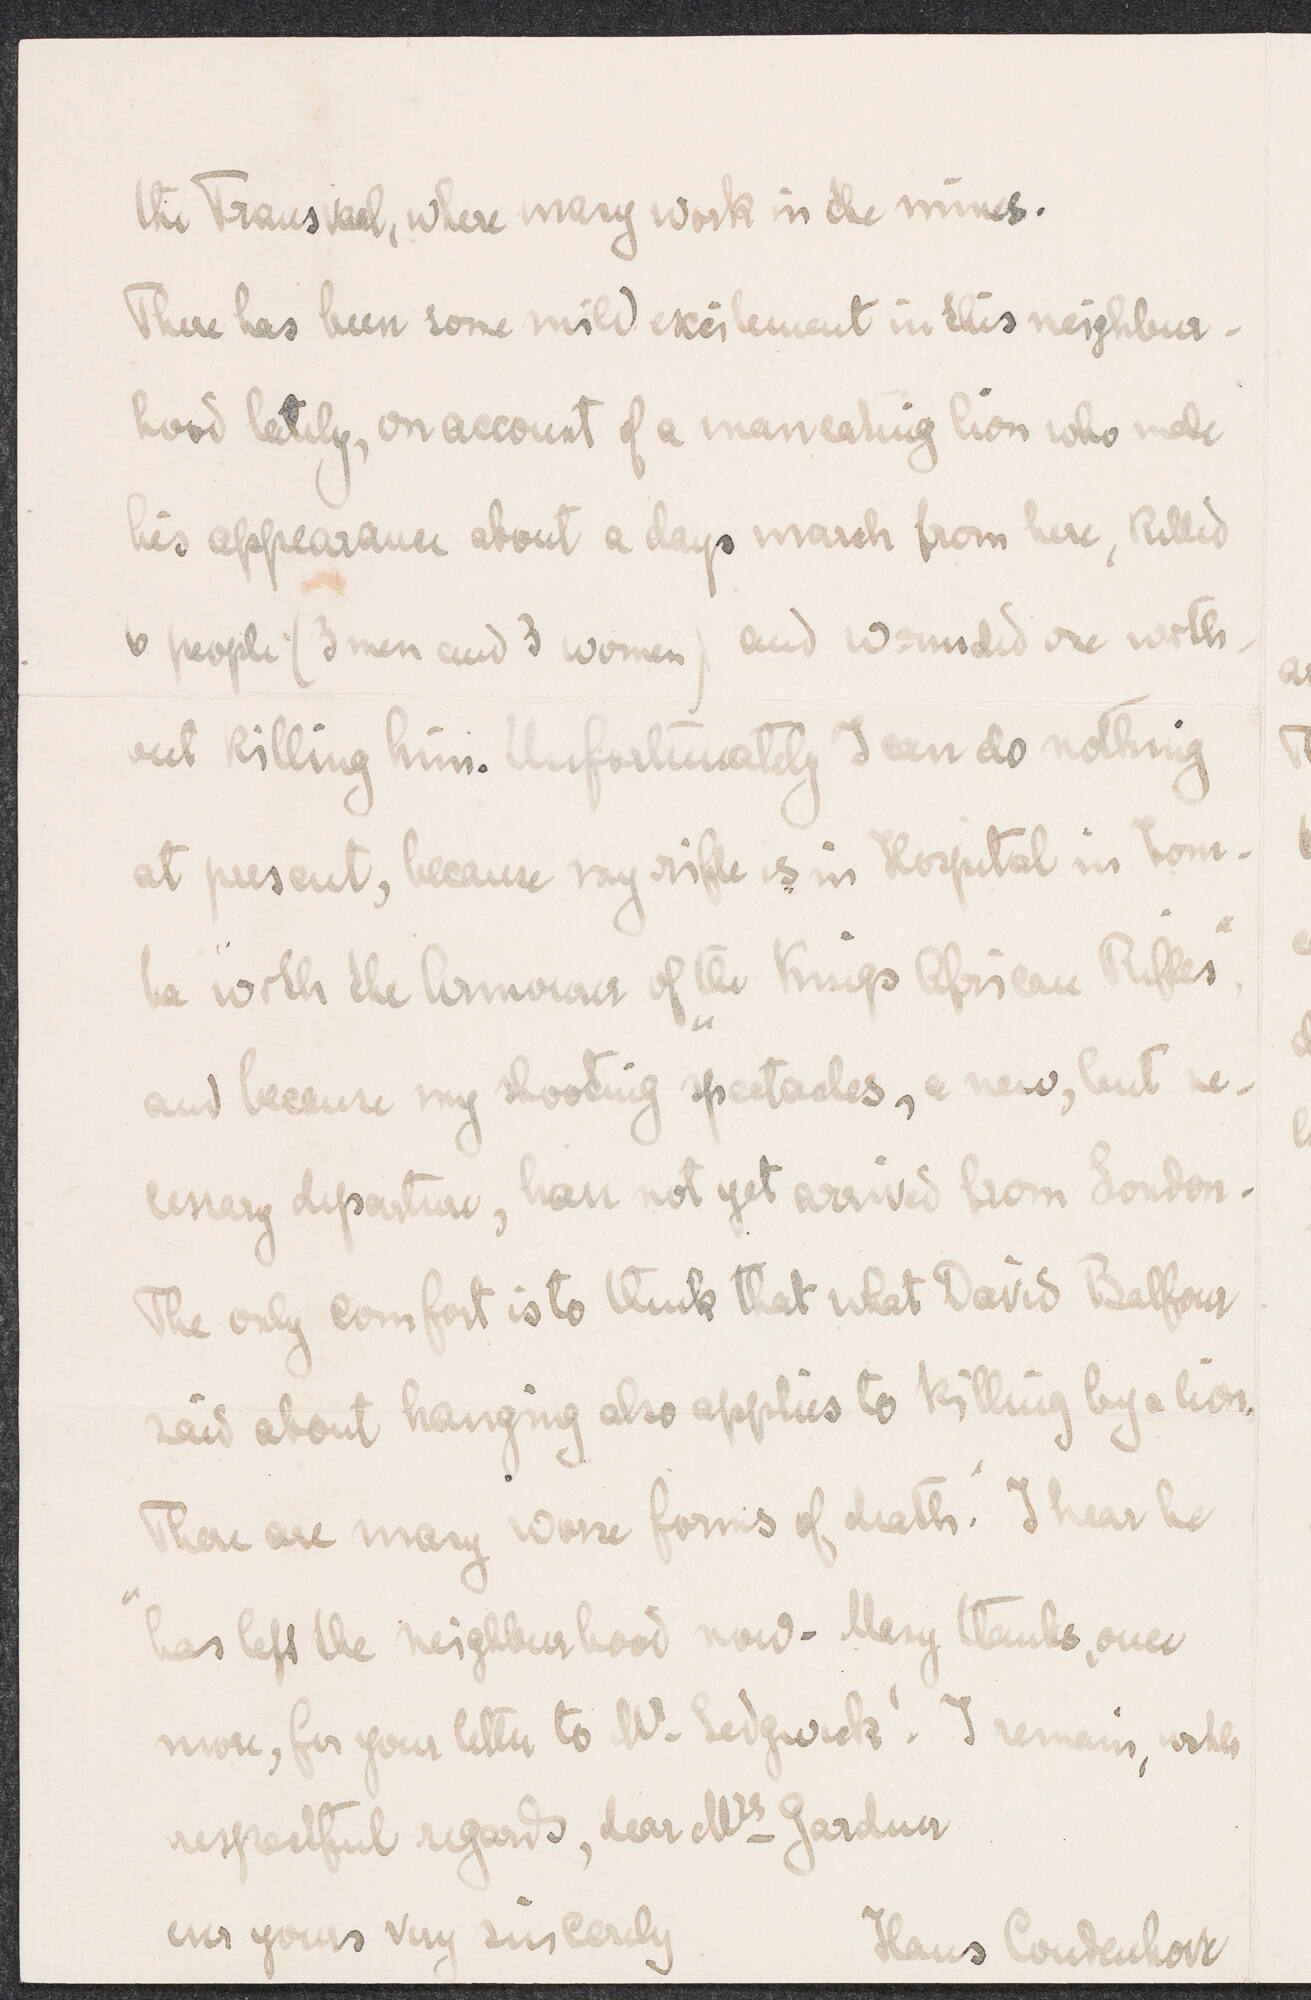 the Transvaal, where many work in the mines.
There has been some mild excitement in this neighbur-
hood lately, on account of a maneating lion who made
his appearance about a days march from here, killed
6 people (3 men and 3 women) and wounded one with-
out killing him. Unfortunately I can do nothing
at present, because my rifle is in Hospital in Zom-
ba with the Armourer of the "Kings African Rifles",
and because my shooting spectacles, a new, but ne-
cessary departure, have not yet arrived from London.
The only comfort is to think that what David Balfour
said about hanging also applies to killing by a lion.
"There are many worse forms of death.' I hear he
has left the neighburhood now. Many thanks, once
more, for your letter to Mr. Sedgwick'. I remain, with
respectful regards, dear Mrs Gardner
ever yours very sincerely Hans Coudenhove